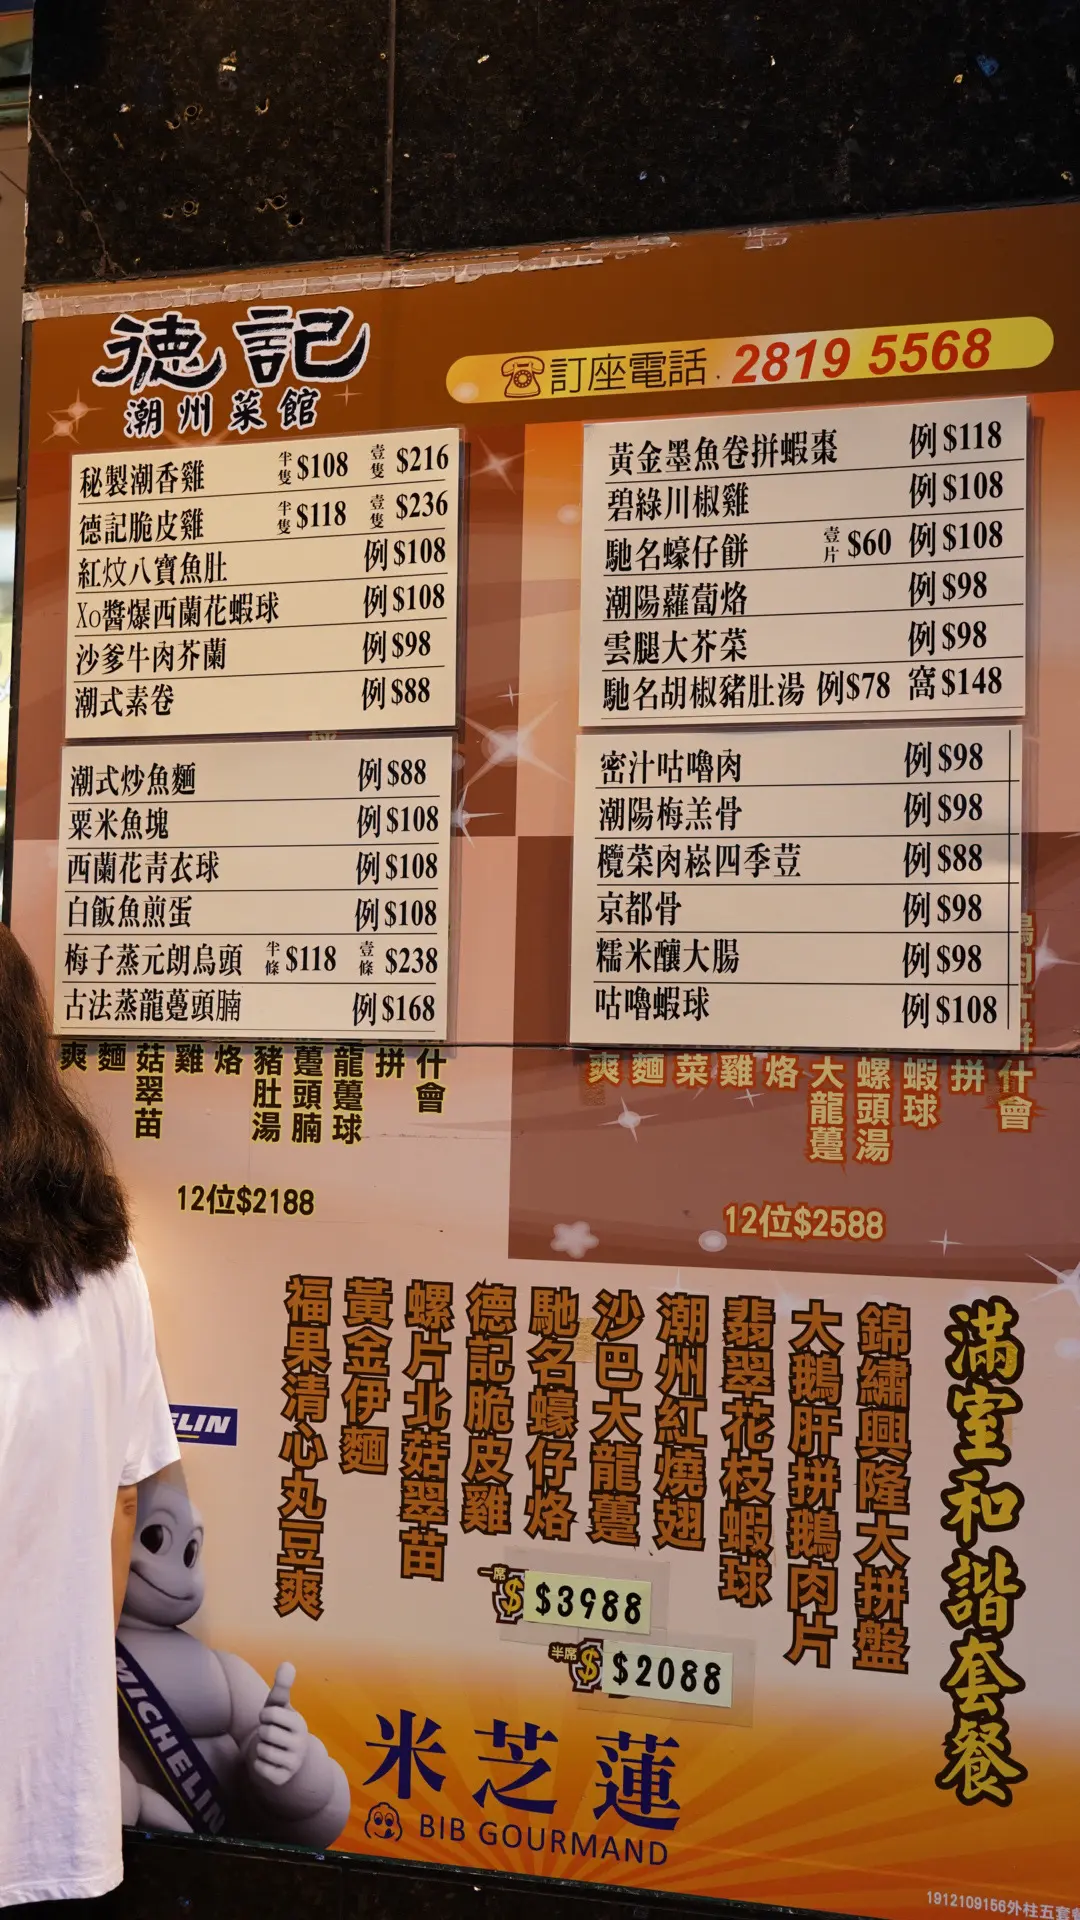 德記
潮州菜館
訂座電話. 2819 5568
秘製潮香雞 半隻 $108 壹隻 $216
德記脆皮雞 半隻 $118 壹隻 $236
紅炆八寶魚肚 例 $108
Xo醬爆西蘭花蝦球 例 $108
沙爹牛肉芥蘭 例 $98
潮式素卷 例 $88
潮式炒魚麵 例 $88
粟米魚塊 例 $108
西蘭花靑衣球 例 $108
白飯魚煎蛋 例 $108
梅子蒸元朗烏頭 半條 $118 壹條 $238
古法蒸龍躉頭腩 例 $168
黃金墨魚卷拼蝦棗 例 $118
碧綠川椒雞 例 $108
馳名蠔仔餅 壹片 $60 例 $108
潮陽蘿蔔烙 例 $98
雲腿大芥菜 例 $98
馳名胡椒豬肚湯 例 $78 窩 $148
密汁咕嚕肉 例 $98
潮陽梅羔骨 例 $98
欖菜肉崧四季荳 例 $88
京都骨 例 $98
糯米釀大腸 例 $98
咕嚕蝦球 例 $108
什會
拼
龍躉球
躉頭腩
豬肚湯
烙
雞
菇翠苗
麵
爽
12位$2188
什會
拼
蝦球
螺頭湯
大龍躉
烙
雞
菜
麵
爽
12位$2588
滿室和諧套餐
錦繡興隆大拼盤
大鵝肝拼鵝肉片
翡翠花枝蝦球
潮州紅燒翅
沙巴大龍躉
馳名蠔仔烙
德記脆皮雞
螺片北菇翠苗
黃金伊麵
福果清心丸豆爽
一席 $ $3988
半席 $ $2088
LIN
MICHELIN
米芝蓮
BIB GOURMAND
1912109156外柱五套